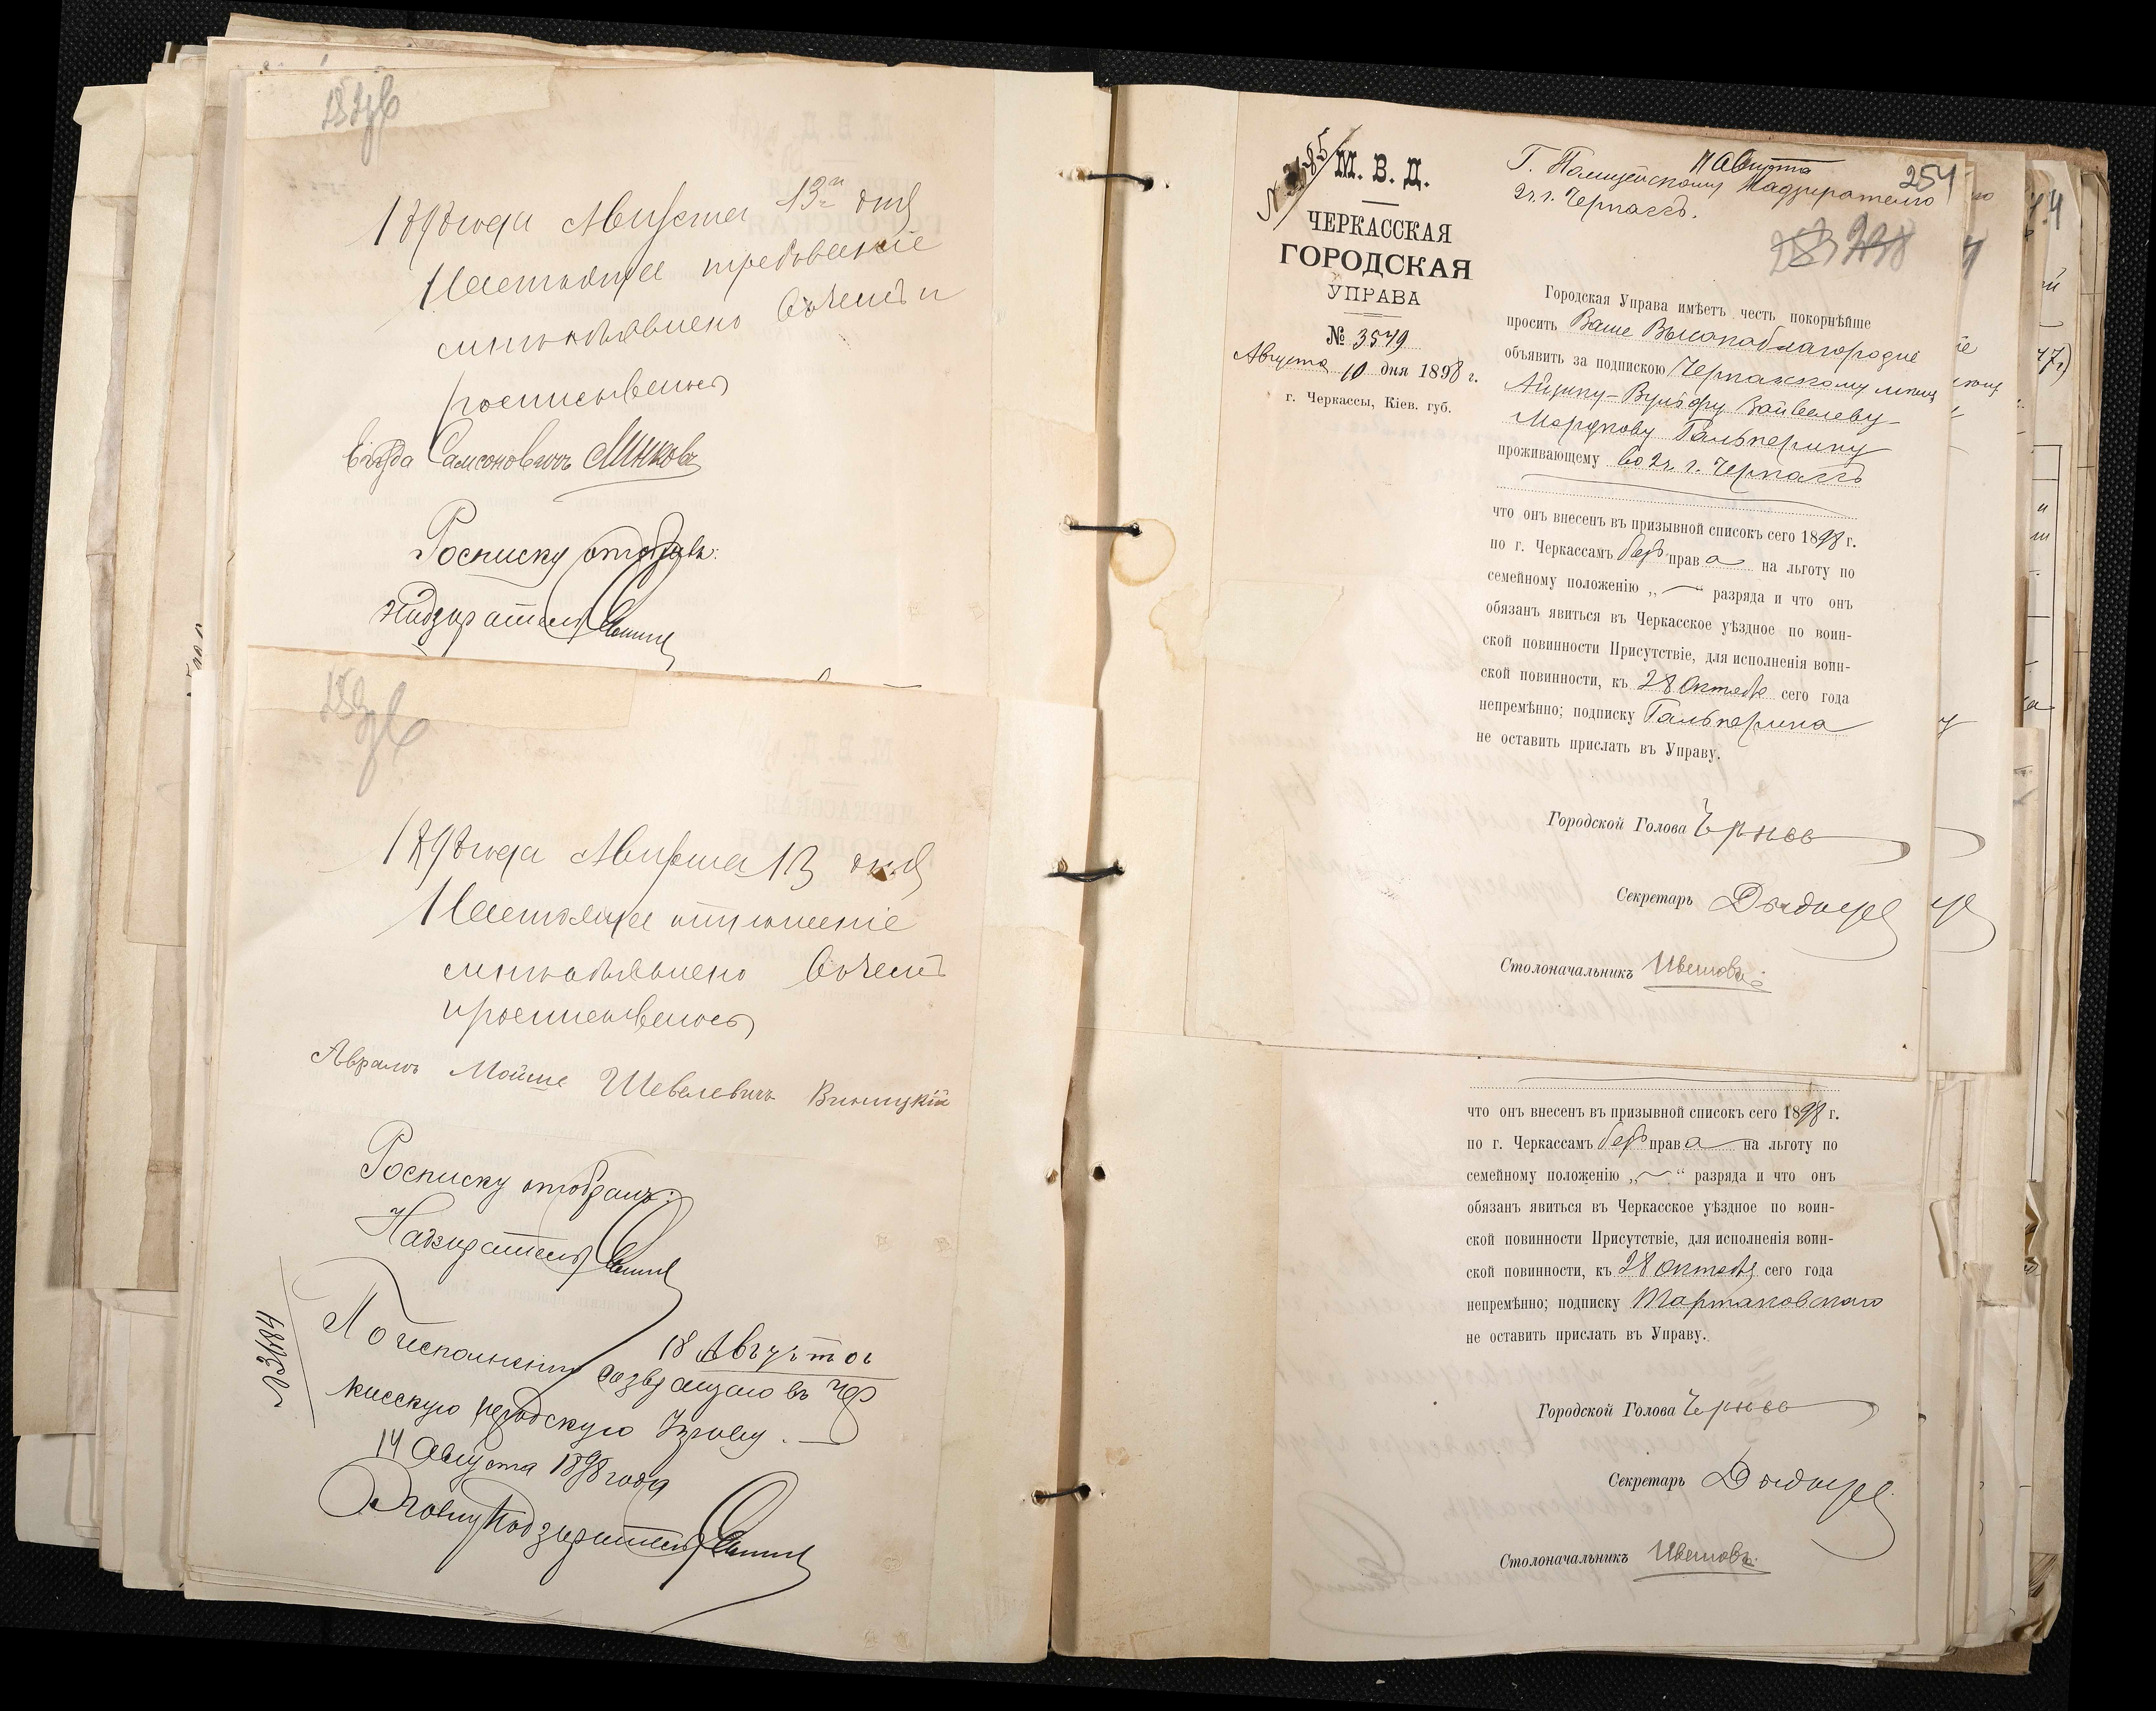 1898 года Августа 13го дня
Настоящее требованіе
мнѣ объявлено въ чемъ и
росписываюсь
Самсоновичъ Минковъ
Росписку отобралъ:
Надзиратель
1898 года Августа 13 дня
Настоящее отношеніе
мнѣ объявлено въ чемъ
и росписываюсь
Аврамъ Мойше Шевелевичъ Виницкій
Росписку отобралъ:
Надзиратель
18 Августа
По исполненіи возвращаю въ Чер
касскую городскую Управу.
14 Августа 1898 года
Надзиратель
№ 3184
№ 3185
М. В. Д.
ЧЕРКАССКАЯ
ГОРОДСКАЯ
УПРАВА
№ 3579
Августа 10 дня 1898 г.
г. Черкассы, Кіев. губ.
11 Августа
254
Г. Полицейскому Надзирателю
2 ч. г. Черкассъ.
Городская Управа имѣетъ честь покорнѣйше
просить Ваше Высокоблагородіе
объявить за подпискою Черкасскому мѣщ
Айзику-Вульфу Вайвелеву-
Мордкову Гальперину
проживающему во 2 ч. г. Черкассъ
что онъ внесенъ въ призывной списокъ сего 1898 г.
по г. Черкассамъ безъ права на льготу по
семейному положенію „—“ разряда и что онъ
обязанъ явиться въ Черкасское уѣздное по воин-
ской повинности Присутствіе, для исполненія воин-
ской повинности, къ 28 Октября сего года
непремѣнно; подписку Гальперина
не оставить прислать въ Управу.
Городской Голова
Секретарь
Столоначальникъ Цвѣтковъ
что онъ внесенъ въ призывной списокъ сего 1898 г.
по г. Черкассамъ безъ права на льготу по
семейному положенію „—“ разряда и что онъ
обязанъ явиться въ Черкасское уѣздное по воин-
ской повинности Присутствіе, для исполненія воин-
ской повинности, къ 28 Октября сего года
непремѣнно; подписку Тартаковскаго
не оставить прислать въ Управу.
Городской Голова
Секретарь
Столоначальникъ Цвѣтковъ